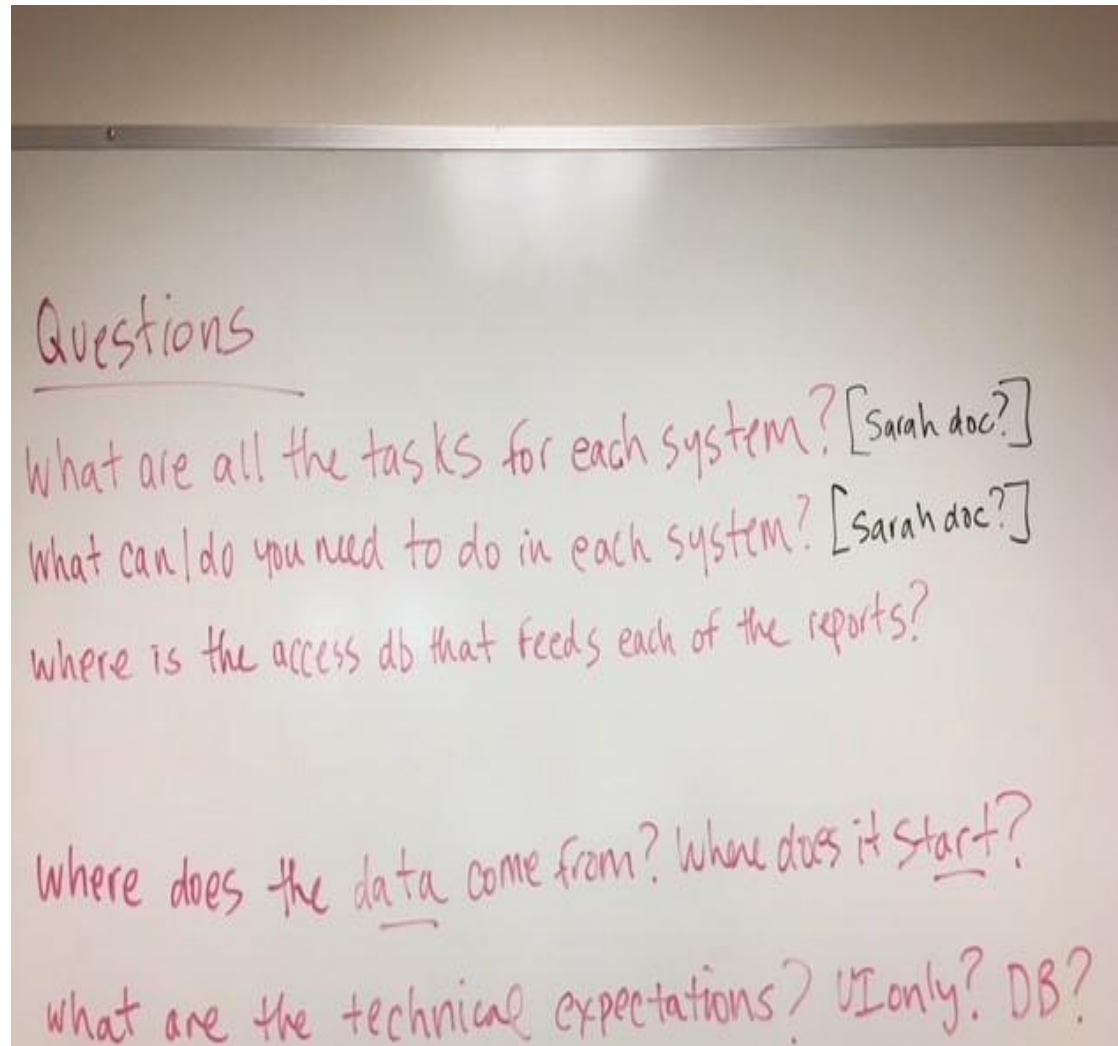 Questions
What are all the tasks for each system? [Sarah doc?]
What can/do you need to do in each system? [Sarah doc?]
where is the access db that feeds each of the reports?
Where does the data come from? Where does it start?
what are the technical expectations? UI only? DB?